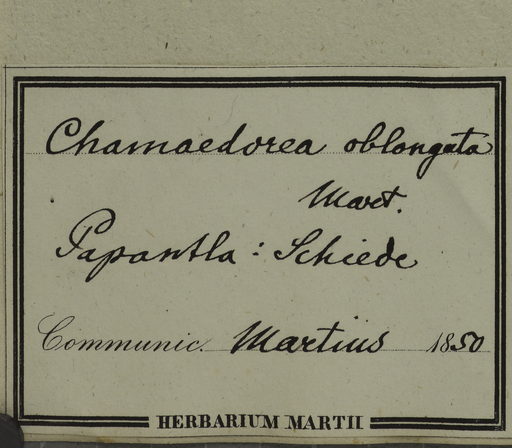 Chamaedorea oblongata
Mart.
Papantla: Schiede
Communic. Martius 1850
HERBARIUM MARTII